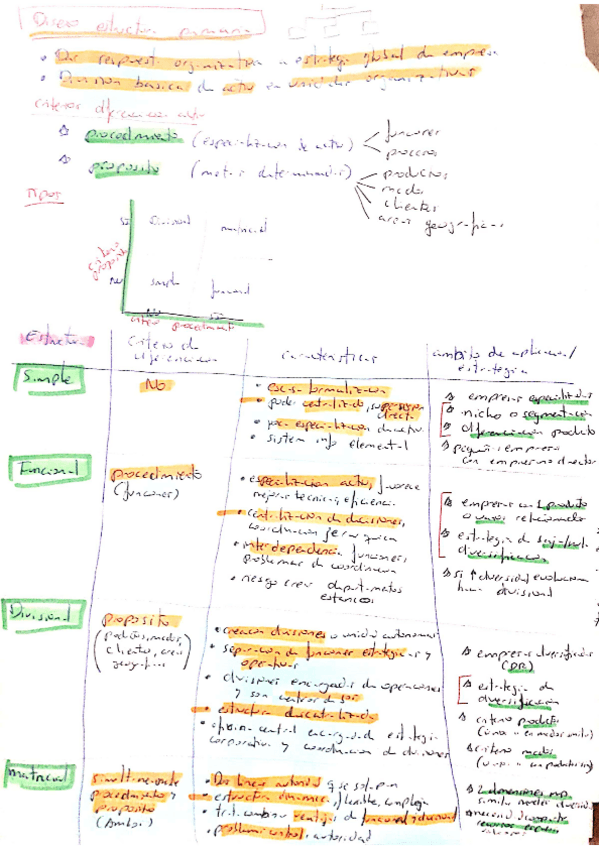 Diseño estructura primaria
• Dar respuesta organizativa a estrategia global de empresa
• División básica de activ en unidades organizativas
criterios diferenciación activ
procedimiento (especialización de activ) funciones
procesos
propósito (metas determinadas) productos
mdos
clientes
areas geográficas
Tipos
si Divisional matricial
criterio propósito
no simple funcional
No si
criterio procedimiento
Estructura criterio de diferenciación características ámbito de aplicación/
estrategia
Simple No
• escasa formalización
• poder centralizado, supervisión directa
• poca especialización directiva
• sistem info elemental
empresas especializadas
nicho o segmentación
diferenciación producto
pequeñ empresa
con empresario director
Funcional procedimiento
(funciones)
• especialización activ, favorece
mejoras tecnicas, eficiencia
• centralización de decisiones,
coordinación jerarquica
• interdependencia funciones,
problemas de coordinación
• riesgo crear departamentos
estancos
empresas con 1 producto
o varios relacionados
estrategia de
diversificación
si ↑ diversidad evoluciona
hacia divisional
Divisional propósito
(productos, mdos,
clientes, areas
geográficas)
• creación divisiones o unidades autonomas
• separación de funciones estratégicas y
operativas
• divisiones encargadas de operaciones
y son centros de
• estructura descentralizada
• oficina central encargada de estrategia
corporativa y coordinación de divisiones
empresas diversificadas
(DR)
estrategia de
diversificación
criterio producto
criterio mdos
Matricial simultaneamente
procedimiento y
propósito
(Ambos)
• Dos lineas autoridad q se solapan
• estructura dinamica, flexible, compleja
• trat combinar ventajas de funcional y divisional
• problemas control y autoridad
2 dimensiones